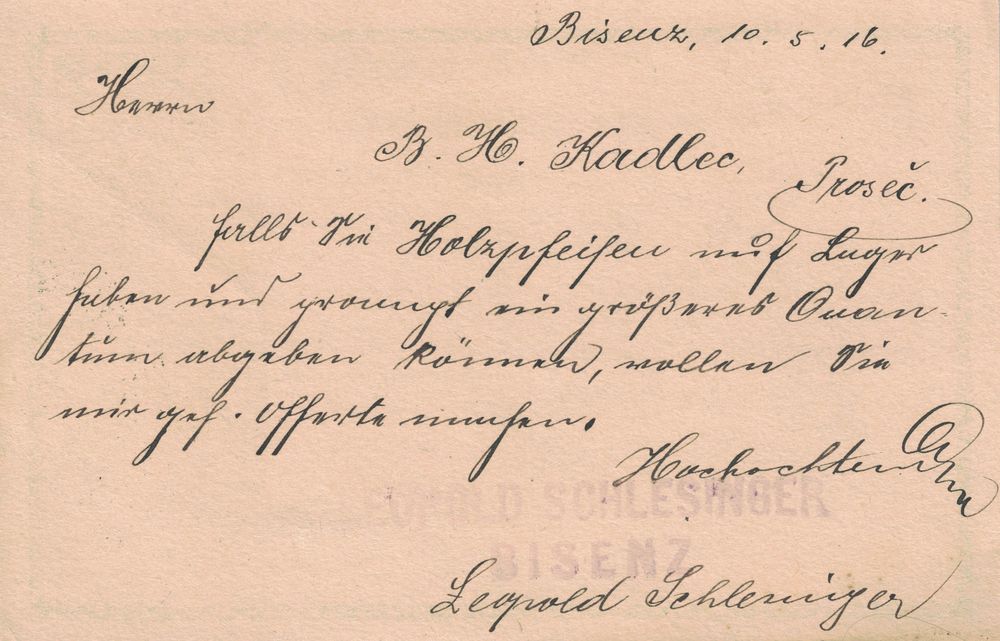 Bisenz, 10. 5. 16.
Herrn
B. H. Kadlec,
Proseč.
falls Sie Holzpfeifen auf Lager
haben und prompt ein größeres Quan-
tum abgeben können, wollen Sie
mir gef. Offerte machen.
Hochachtend
LEOPOLD SCHLESINGER
BISENZ
Leopold Schlesinger